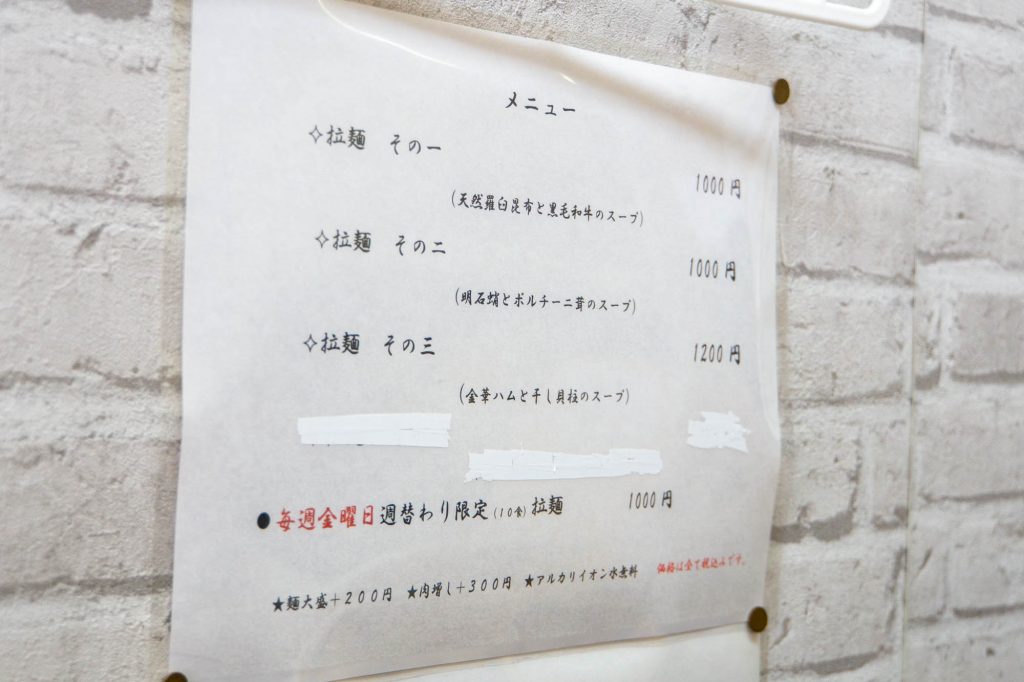 メニュー
✧拉麺 その一
1000円
(天然羅臼昆布と黒毛和牛のスープ)
✧拉麺 その二
1000円
(明石蛸とポルチーニ茸のスープ)
✧拉麺 その三
1200円
(金華ハムと干し貝柱のスープ)
●毎週金曜日週替わり限定(10食)拉麺 1000円
★麺大盛+200円 ★肉増し+300円 ★アルカリイオン水無料 価格は全て税込みです。